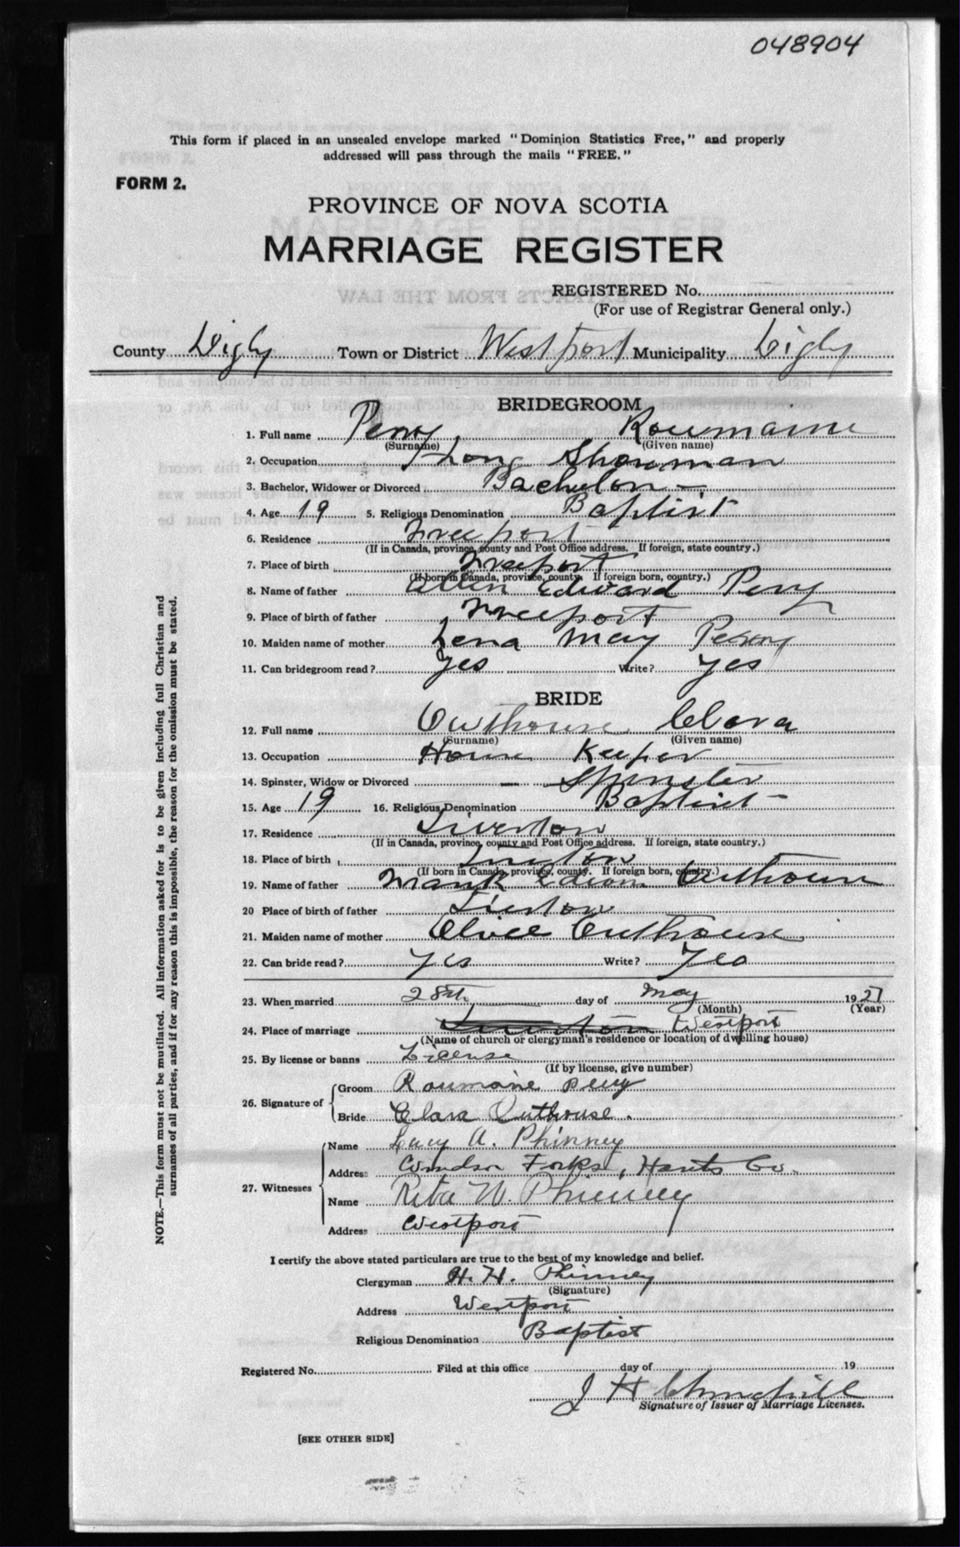 048904
This form if placed in an unsealed envelope marked "Dominion Statistics Free," and properly
addressed will pass through the mails "FREE."
FORM 2.
PROVINCE OF NOVA SCOTIA
MARRIAGE REGISTER
REGISTERED No.
(For use of Registrar General only.)
County Digby Town or District Westport Municipality Digby
BRIDEGROOM
1. Full name Perry Roumaine
(Surname) (Given name)
2. Occupation
3. Bachelor, Widower or Divorced Bachelor
4. Age 19 5. Religious Denomination Baptist
6. Residence Freeport
(If in Canada, province, county and Post Office address. If foreign, state country.)
7. Place of birth Freeport
(If born in Canada, province, county. If foreign born, country.)
8. Name of father Allen Edward Perry
9. Place of birth of father Freeport
10. Maiden name of mother Lena May
11. Can bridegroom read? Yes Write? Yes
BRIDE
12. Full name Outhouse Clara
(Surname) (Given name)
13. Occupation House Keeper
14. Spinster, Widow or Divorced — Spinster
15. Age 19 16. Religious Denomination Baptist
17. Residence Tiverton
(If in Canada, province, county and Post Office address. If foreign, state country.)
18. Place of birth Tiverton
(If born in Canada, province, county. If foreign born, country.)
19. Name of father Mark Outhouse
20 Place of birth of father Tiverton
21. Maiden name of mother Outhouse
22. Can bride read? Yes Write? Yes
23. When married 28th day of May 1927
(Month) (Year)
24. Place of marriage Westport
(Name of church or clergyman's residence or location of dwelling house)
25. By license or banns License
(If by license, give number)
26. Signature of
Groom Roumaine Perry
Bride Clara Outhouse.
27. Witnesses
Name Lucy A. Phinney
Address Windsor Forks, Hants Co.
Name Rita W. Phinney
Address Westport
I certify the above stated particulars are true to the best of my knowledge and belief.
Clergyman H. H. Phinney
(Signature)
Address Westport
Religious Denomination Baptist
Registered No. Filed at this office day of 19
J H Churchill
Signature of Issuer of Marriage Licenses.
[SEE OTHER SIDE]
NOTE.—This form must not be mutilated. All information asked for is to be given including full Christian and
surnames of all parties, and if for any reason this is impossible, the reason for the omission must be stated.